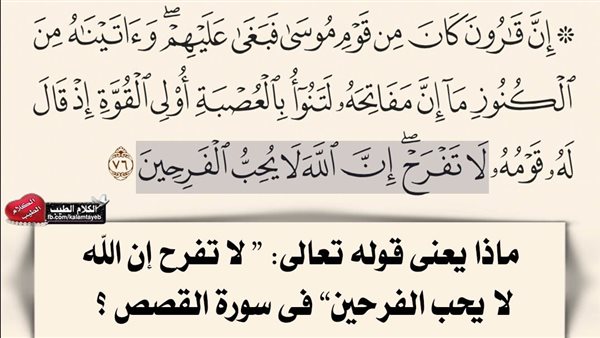 ۞ إِنَّ قَٰرُونَ كَانَ مِن قَوْمِ مُوسَىٰ فَبَغَىٰ عَلَيْهِمْ ۖ وَءَاتَيْنَٰهُ مِنَ
ٱلْكُنُوزِ مَآ إِنَّ مَفَاتِحَهُۥ لَتَنُوٓأُ بِٱلْعُصْبَةِ أُو۟لِى ٱلْقُوَّةِ إِذْ قَالَ
لَهُۥ قَوْمُهُۥ لَا تَفْرَحْ ۖ إِنَّ ٱللَّهَ لَا يُحِبُّ ٱلْفَرِحِينَ ٧٦
الكلام الطيب
الكلام الطيب
fb.com/kalamtayeb
ماذا يعنى قوله تعالى: " لا تفرح إن الله
لا يحب الفرحين" فى سورة القصص ؟